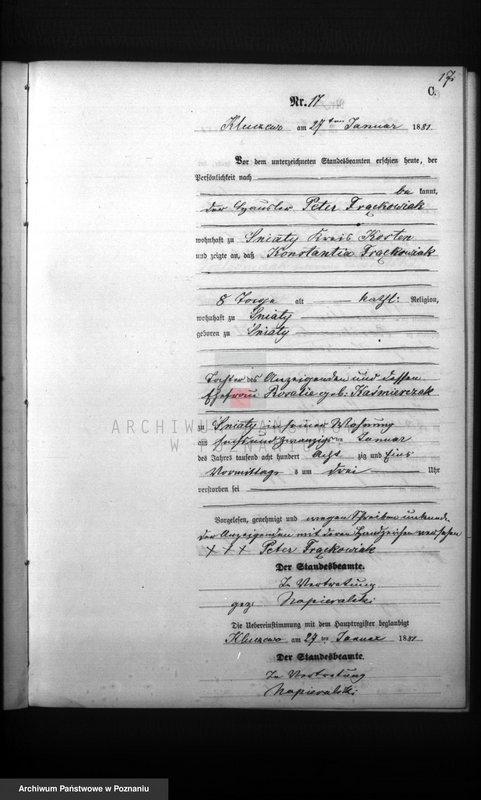 17.
C.
Nr. 17
Kluczewo am 27ten Januar 1881
Vor dem unterzeichneten Standesbeamten erschien heute, der
Persönlichkeit nach
be kannt,
der Häusler Peter Frąckowiak
wohnhaft zu Sniaty Kreis Kosten
und zeigte an, daß Konstantia Frąckowiak
8 Tage alt kathl: Religion,
wohnhaft zu Sniaty
geboren zu Sniaty
Tochter des Anzeigenden und dessen
Ehefrau Rosalie geb: Kaśmierczak
zu Sniaty in seiner Wohnung
am sechsundzwanzigten Januar
des Jahres tausend acht hundert Acht zig und Eins
Vormittags um drei Uhr
verstorben sei
Vorgelesen, genehmigt und wegen Schreibens unkunde
der Anzeigenden mit deren Handzeichen versehen
+ + + Peter Frąckowiak
Der Standesbeamte.
In Vertretung
gez Napieralski
Die Uebereinstimmung mit dem Hauptregister beglaubigt
Kluczewo am 27ten Januar 1881
Der Standesbeamte.
In Vertretung
Napieralski
ARCHIWUM PAŃSTWOWE
W POZNANIU
Archiwum Państwowe w Poznaniu